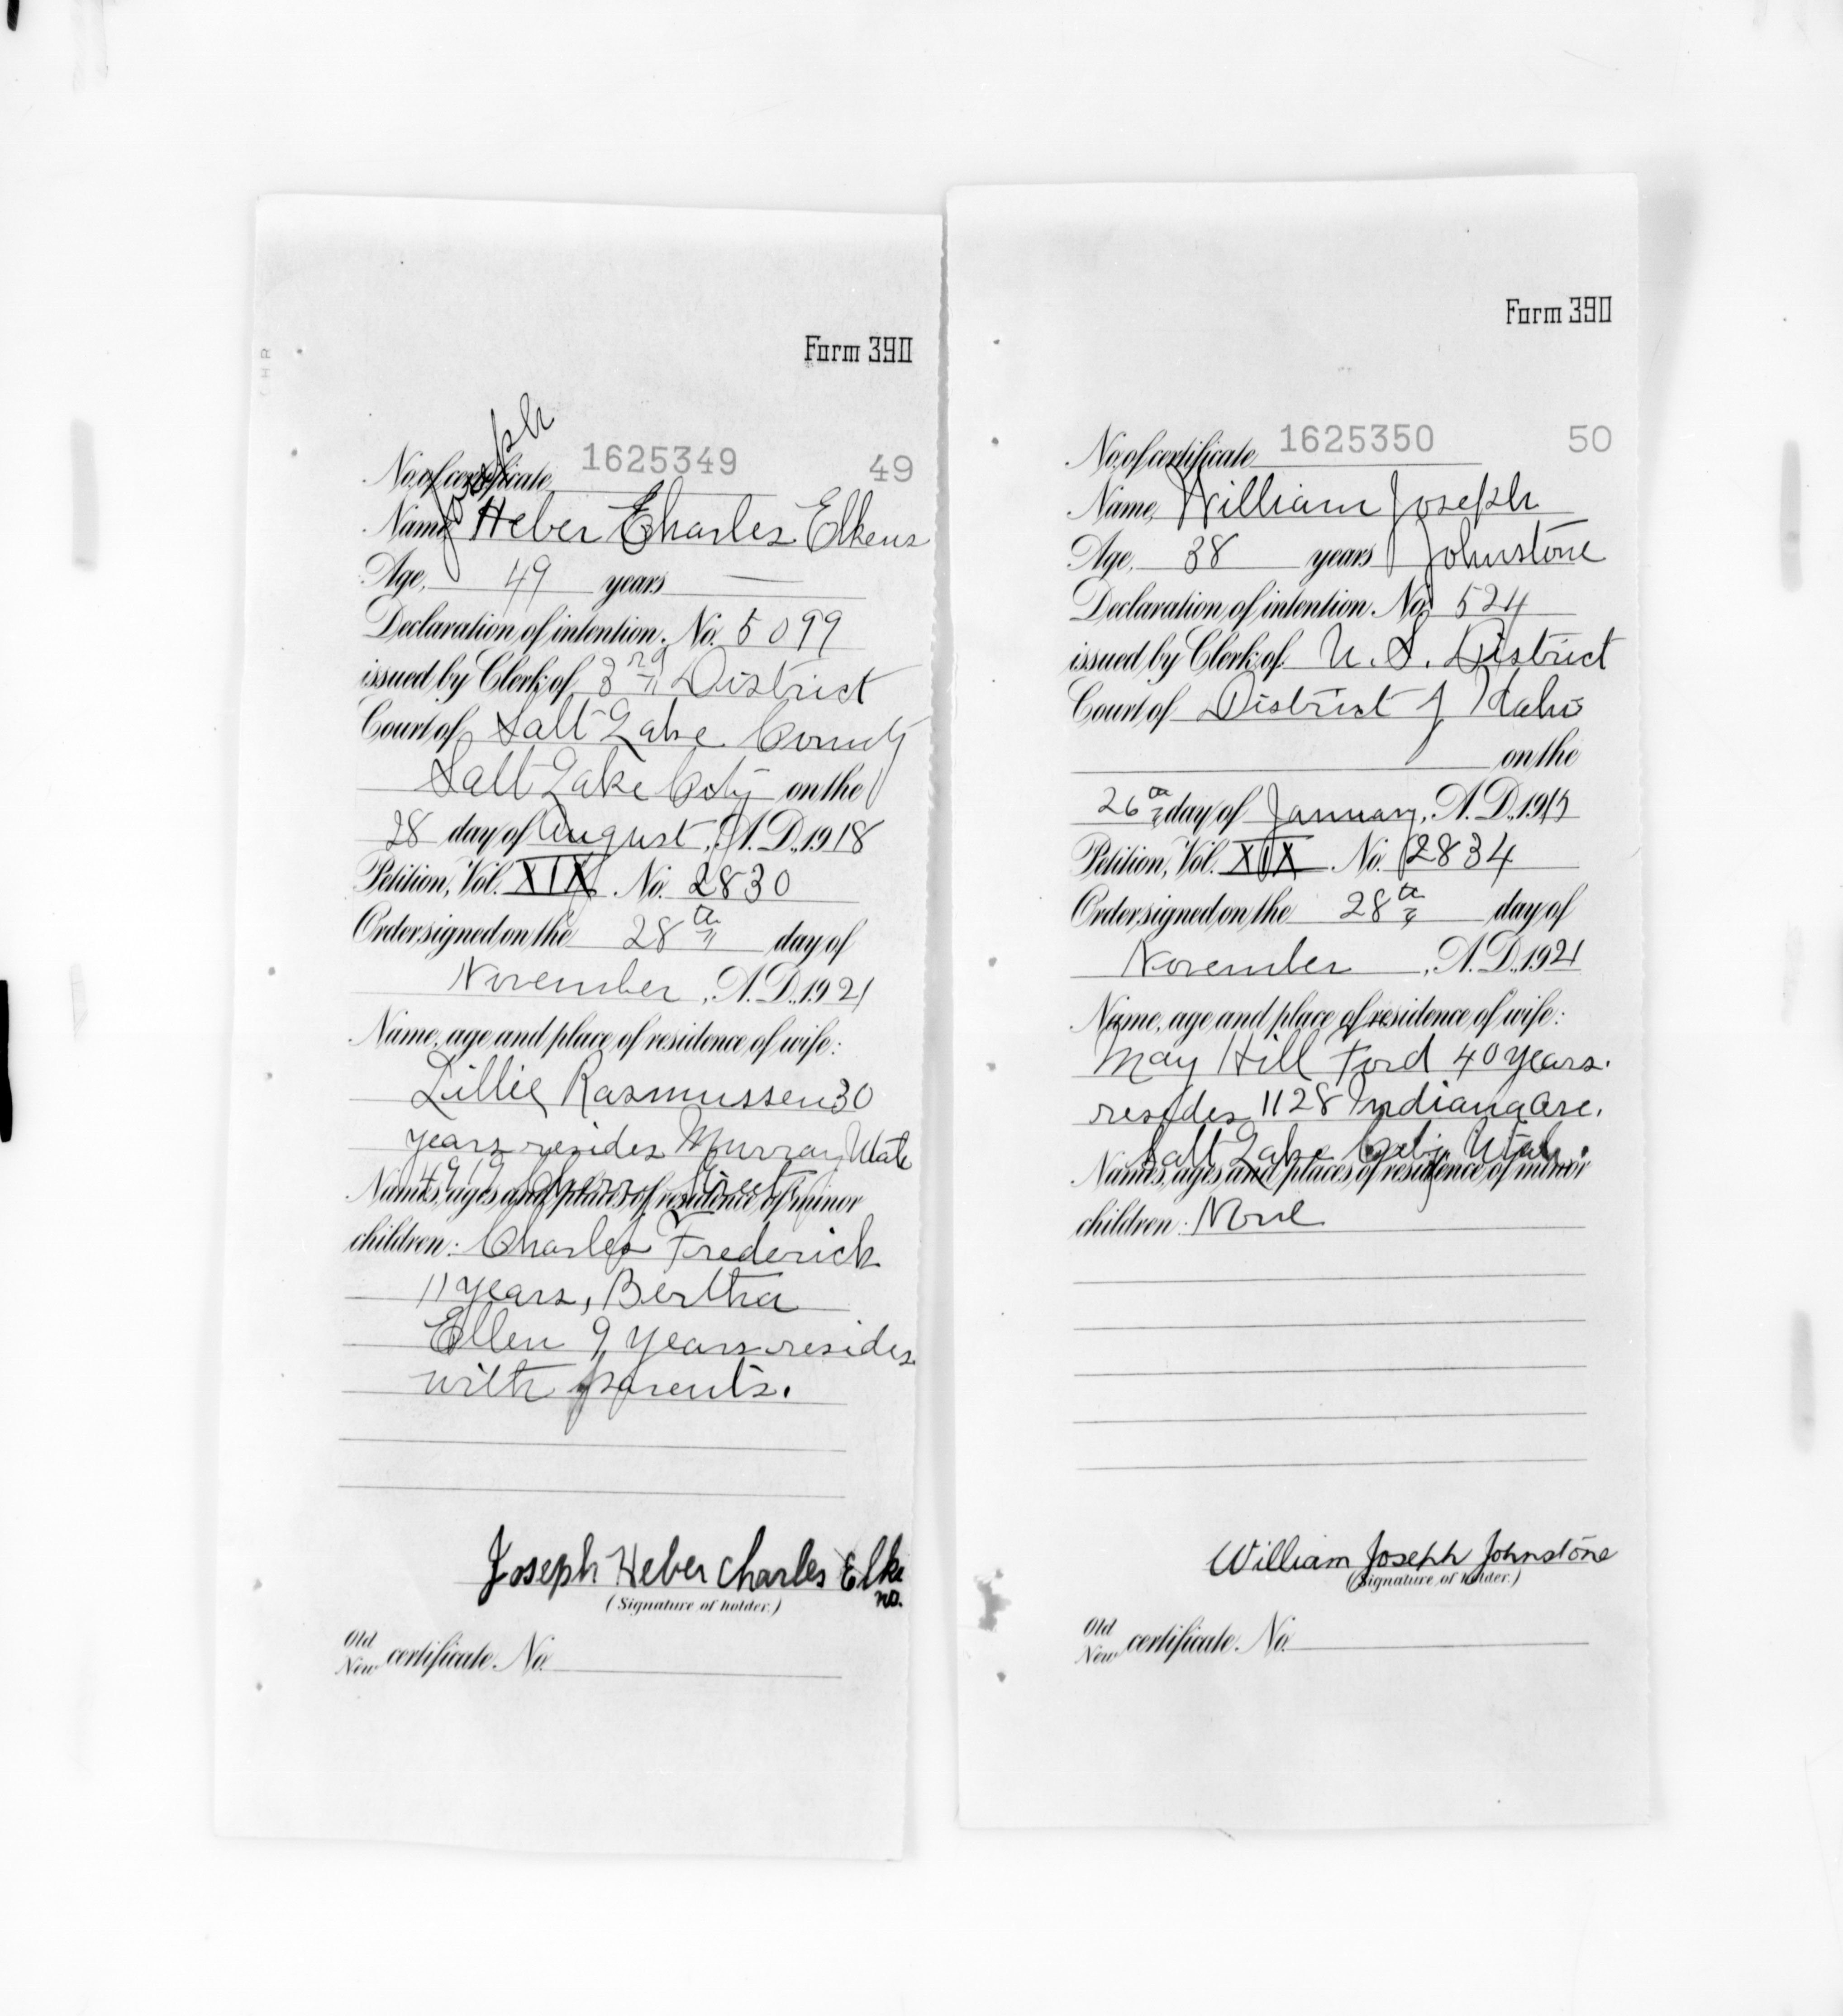 Form 390
Joseph
No. of certificate 1625349 49
Name, Heber Charles Elkens
Age, 49 years
Declaration of intention, No. 5099
issued by Clerk of 3rd District
Court of Salt Lake County
Salt Lake City on the
28 day of August, A.D., 1918
Petition, Vol. XIX No. 2830
Order signed on the 28th day of
November, A.D., 1921
Name, age and place of residence of wife:
Lillie Rasmussen 30
years resides Murray Utah
4919 Cherry Street
Names, ages and places of residence of minor
children: Charles Frederick
11 years, Bertha
Ellen 9 years resides
with parents.
Joseph Heber Charles Elke
ns.
(Signature of holder.)
Old
New certificate No.
Form 390
No. of certificate 1625350 50
Name, William Joseph
Age, 38 years Johnstone
Declaration of intention, No. 524
issued by Clerk of U. S. District
Court of District of Idaho
on the
26th day of January, A.D., 1915
Petition, Vol. XIX No. 2834
Order signed on the 28th day of
November, A.D., 1921
Name, age and place of residence of wife:
May Hill Ford 40 years.
resides 1128 Indiana Ave.
Salt Lake City Utah.
Names, ages and places of residence of minor
children: None
William Joseph Johnstone
(Signature of holder.)
Old
New certificate No.